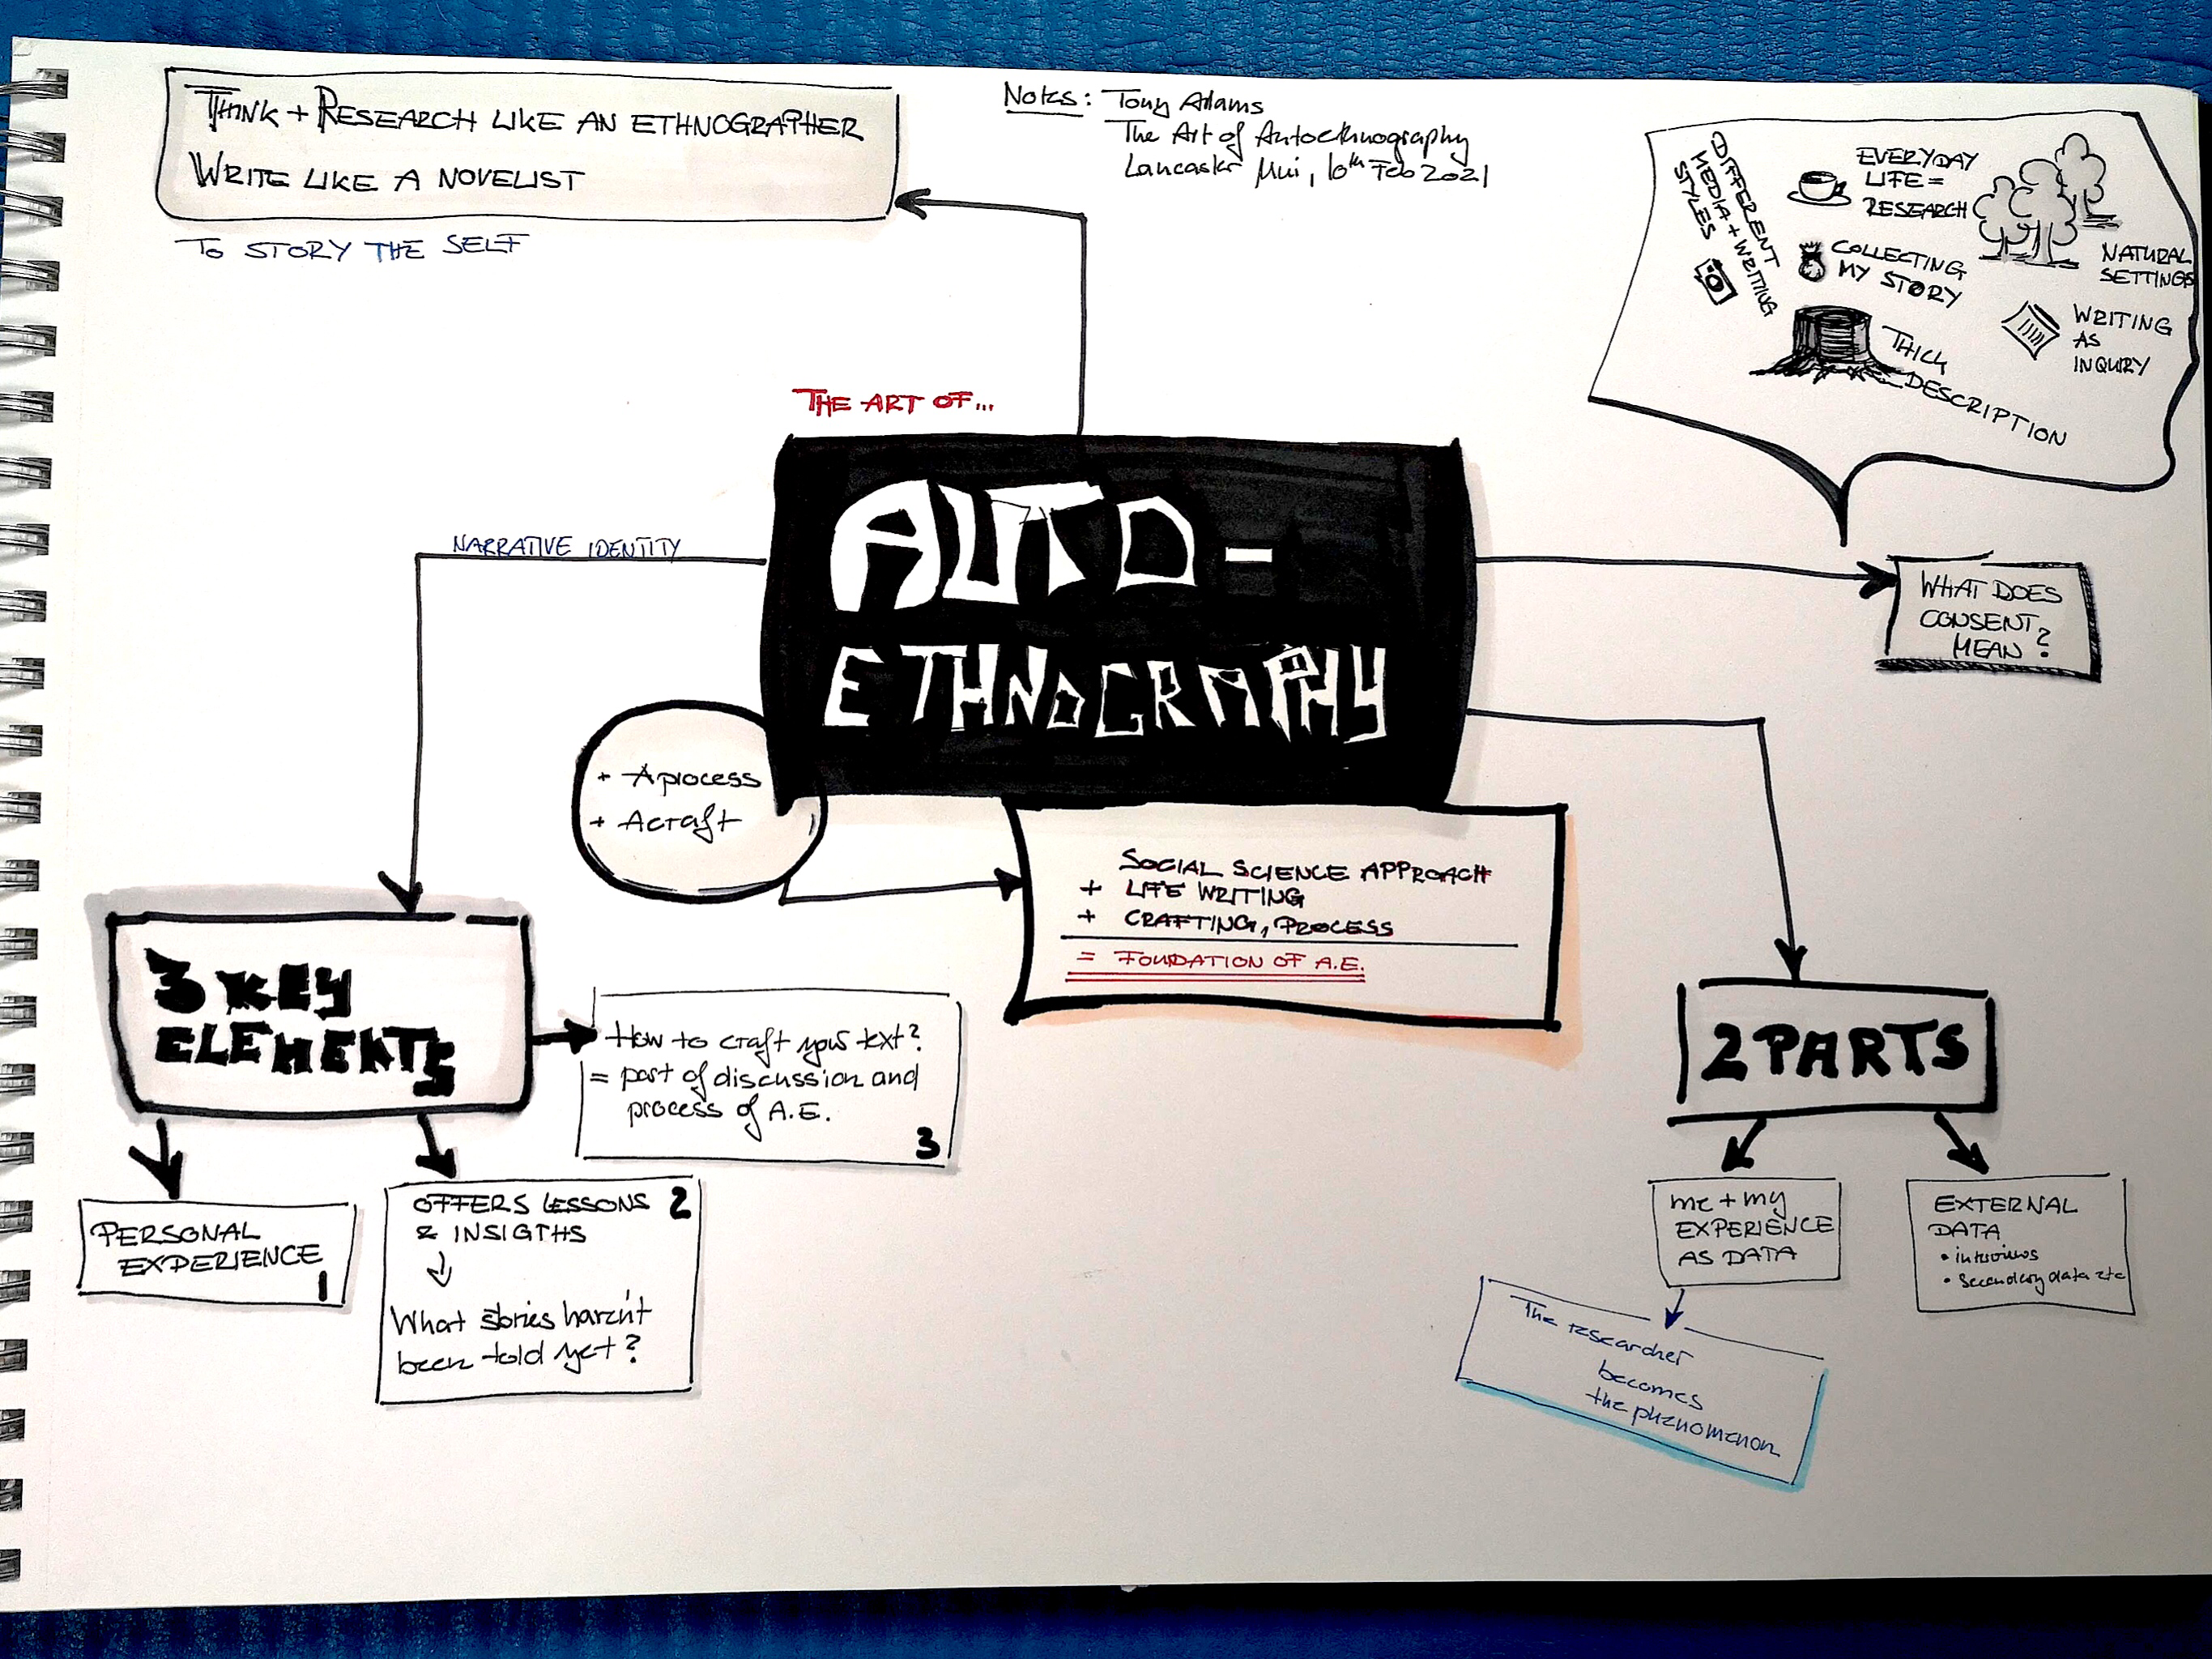 THINK + RESEARCH LIKE AN ETHNOGRAPHER
WRITE LIKE A NOVELIST
TO STORY THE SELF
Notes: Tony Adams
The Art of Autoethnography
Lancaster Uni, 10th Feb 2021
DIFFERENT
MEDIA + WRITING
STYLES
EVERYDAY
LIFE =
RESEARCH
COLLECTING
MY STORY
NATURAL
SETTINGS
WRITING
AS
INQUIRY
THICK
DESCRIPTION
THE ART OF...
AUTO-
ETHNOGRAPHY
NARRATIVE IDENTITY
WHAT DOES
CONSENT
MEAN?
+ A process
+ A craft
SOCIAL SCIENCE APPROACH
+ LIFE WRITING
+ CRAFTING, PROCESS
= FOUNDATION OF A.E.
3 KEY
ELEMENTS
How to craft your text?
= part of discussion and
process of A.E.
3
PERSONAL
EXPERIENCE
1
OFFERS LESSONS 2
& INSIGTHS
What stories haven't
been told yet?
2 PARTS
me + my
EXPERIENCE
AS DATA
EXTERNAL
DATA
• interviews
• secondary data etc
The researcher
becomes
the phenomenon